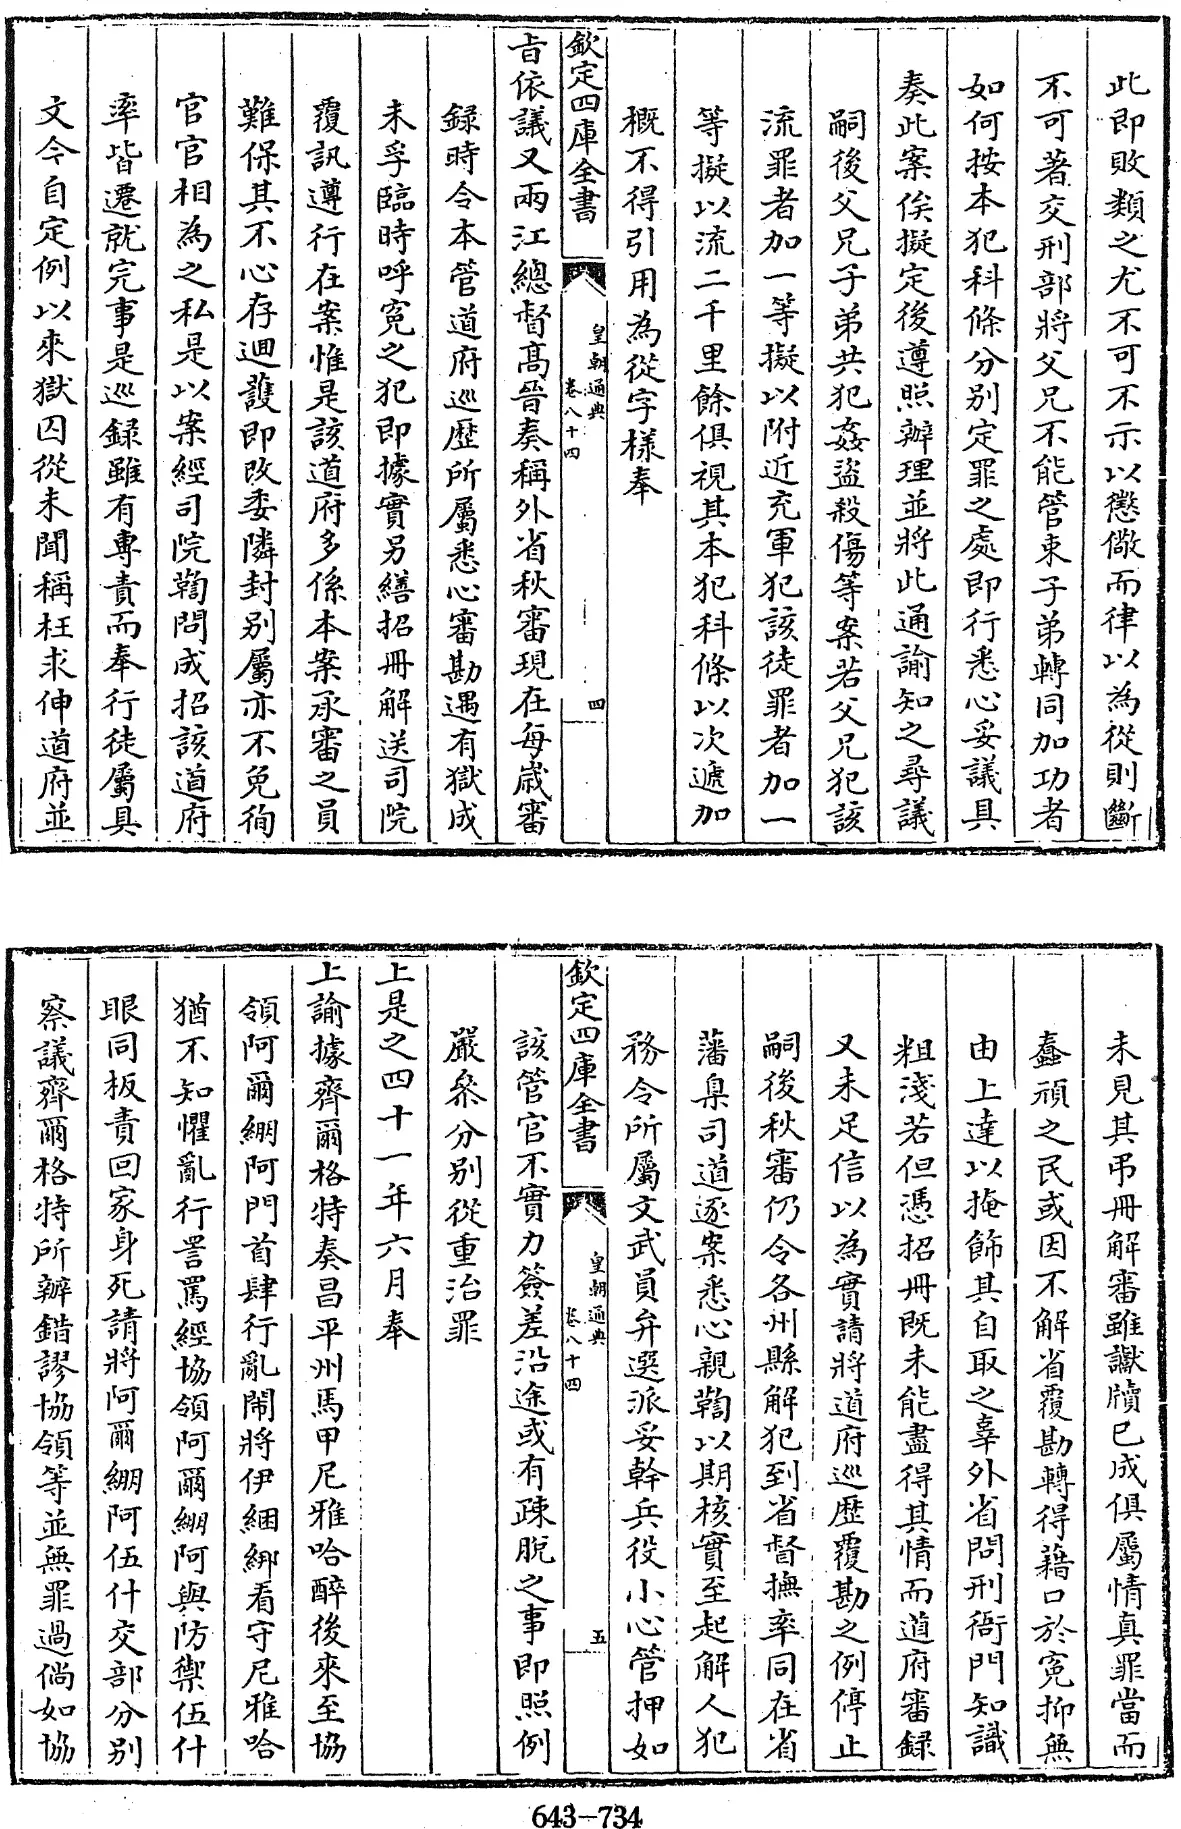 此即敗類之尤不可不示以懲儆而律以為從則斷
不可著交刑部將父兄不能管束子弟轉同加功者
如何按本犯科條分别定罪之處即行悉心妥議具
奏此案俟擬定後遵照辦理並將此通諭知之尋議
嗣後父兄子弟共犯姦盗殺傷等案若父兄犯該
流罪者加一等擬以附近充軍犯該徒罪者加一
等擬以流二千里餘俱視其本犯科條以次遞加
概不得引用為從字樣奉
欽定四庫全書
皇朝通典
卷八十四
四
旨依議又兩江總督髙晉奏稱外省秋審現在每嵗審
録時令本管道府巡歴所屬悉心審勘遇有獄成
未孚臨時呼寃之犯即據實另繕招冊解送司院
覆訊遵行在案惟是該道府多係本案承審之員
難保其不心存迴護即改委隣封别屬亦不免徇
官官相為之私是以案經司院鞫問成招該道府
率皆遷就完事是巡録雖有專責而奉行徒屬具
文今自定例以來獄囚從未聞稱枉求伸道府並
未見其弔冊解審雖讞牘已成俱屬情真罪當而
蠢頑之民或因不解省覆勘轉得藉口於寃抑無
由上達以掩飾其自取之辜外省問刑衙門知識
粗淺若但憑招冊既未能盡得其情而道府審録
又未足信以為實請將道府巡歴覆勘之例停止
嗣後秋審仍令各州縣解犯到省督撫率同在省
藩臬司道逐案悉心親鞫以期核實至起解人犯
務令所屬文武員弁選派妥幹兵役小心管押如
欽定四庫全書
皇朝通典
卷八十四
五
該管官不實力簽差沿途或有疎脱之事即照例
嚴叅分别從重治罪
上是之四十一年六月奉
上諭據齊爾格特奏昌平州馬甲尼雅哈醉後來至協
領阿爾綳阿門首肆行亂鬧將伊綑綁看守尼雅哈
猶不知懼亂行詈罵經協領阿爾綳阿與防禦伍什
眼同板責回家身死請將阿爾綳阿伍什交部分别
察議齊爾格特所辦錯謬協領等並無罪過倘如協
643-734